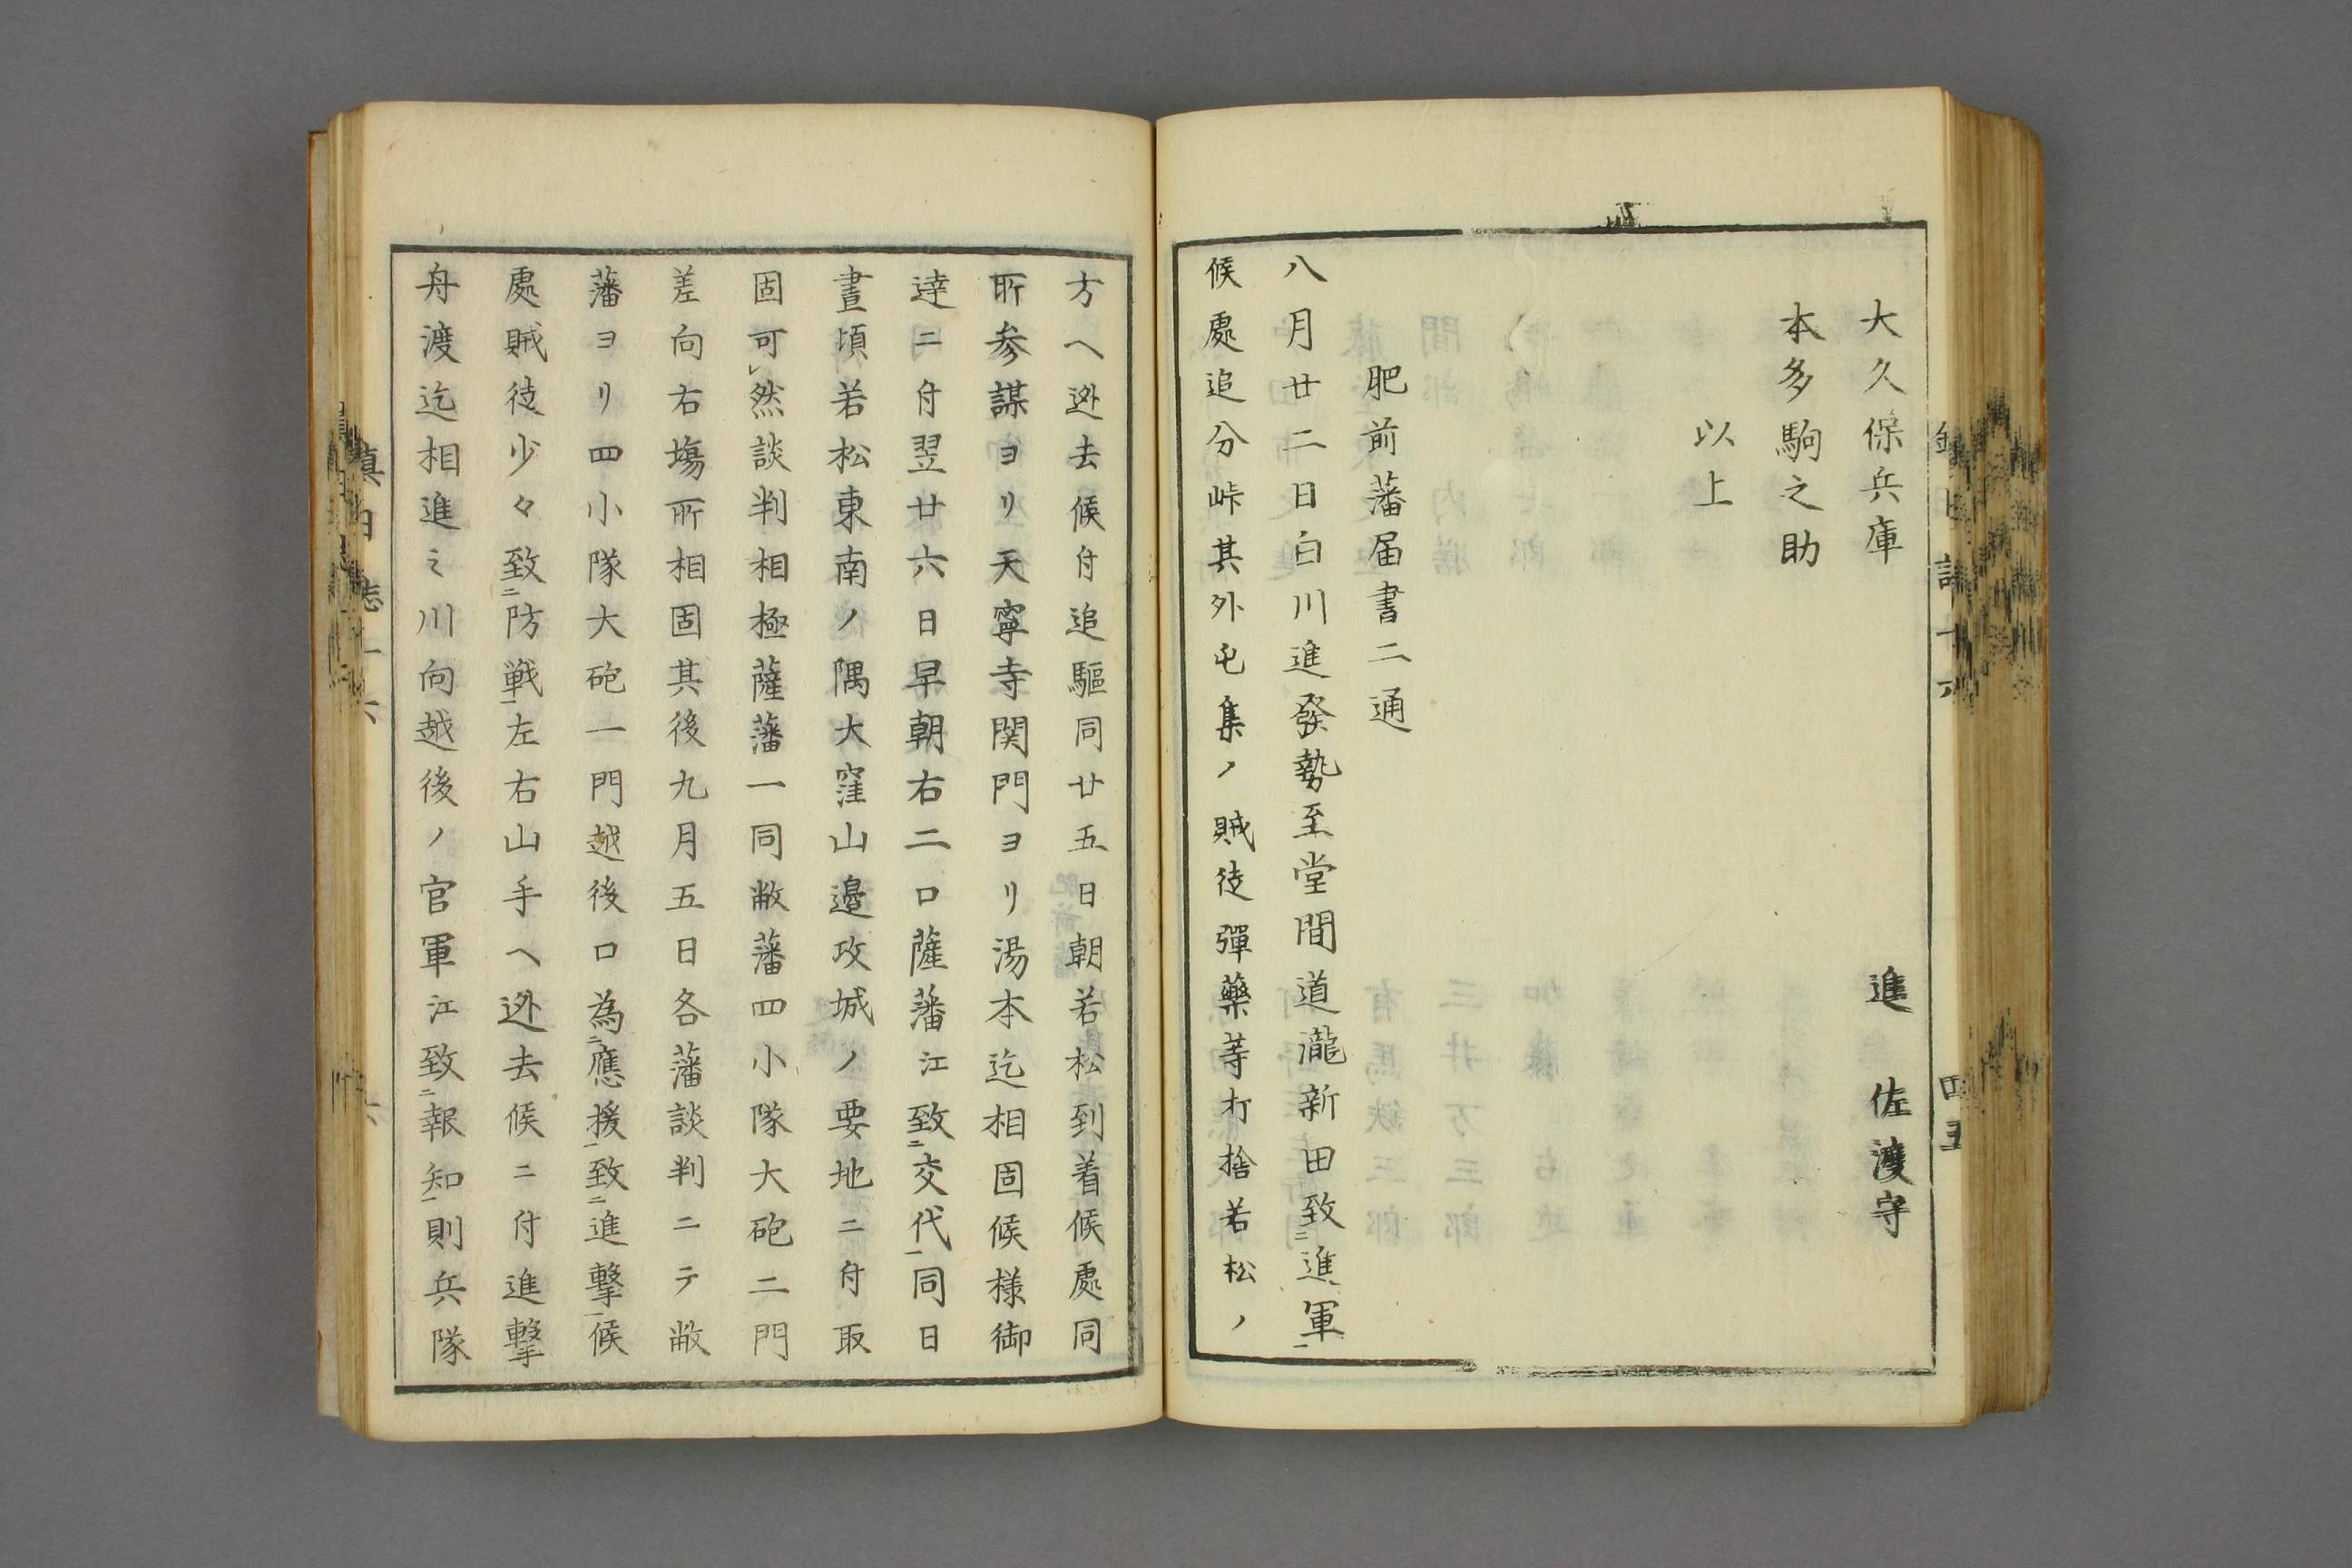 大久保兵庫　進　佐渡守
本多駒之助
以上
肥前藩届書二通
八月廿二日白川進發勢至堂間道瀧新田致㆓進軍㆒
候處追分峠其外屯集ノ賊徒彈藥等打捨若松ノ
方ヘ迯去候付追驅同廿五日朝若松到着候處同
所参謀ヨリ天寧寺関門ヨリ湯本迄相固候様御
達ニ付翌廿六日早朝右二口薩藩江致㆓交代㆒同日
晝頃若松東南ノ隅大窪山邉攻城ノ要地ニ付取
固可㆑然談判相極薩藩一同敝藩四小隊大砲二門
差向右場所相固其後九月五日各藩談判ニテ敝
藩ヨリ四小隊大砲一門越後口為㆓應援㆒致㆓進撃㆒候
處賊徒少々致㆓防戦㆒左右山手ヘ迯去候ニ付進撃
舟渡迄相進ミ川向越後ノ官軍江致㆓報知㆒則兵隊